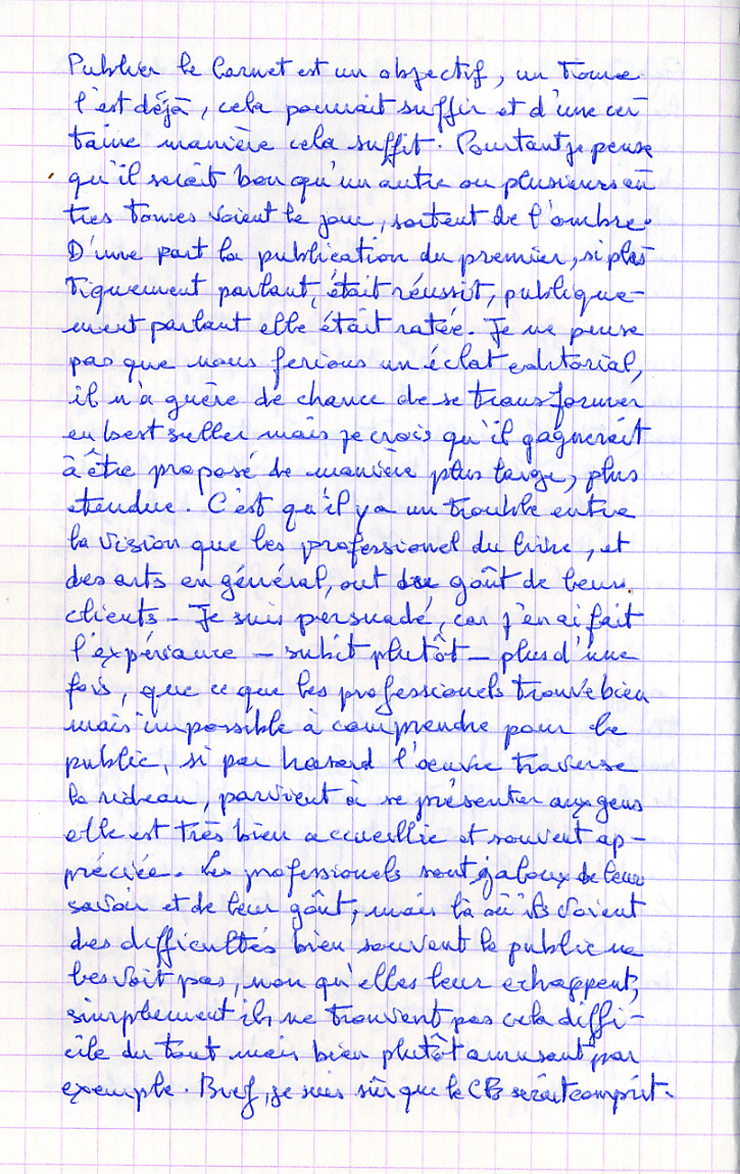 Publier le Carnet est un objectif, un Tome
l'est déjà, cela pouvait suffir et d'une cer
taine manière cela suffit. Pourtant je pense
qu'il serait bon qu'un autre ou plusieurs au
tres tomes voient le jour, sortent de l'ombre.
D'une part la publication du premier, si plas
tiquement parlant, était réussit, publique-
ment parlant elle était ratée. Je ne pense
pas que nous ferions un éclat editorial,
il n'a guère de chance de se transformer
en best seller mais je crois qu'il gagnerait
à être proposé de manière plus large, plus
etendue. C'est qu'il y a un trouble entre
la vision que les professionel du livre, et
des arts en général, ont du goût de leurs
clients - Je suis persuadé, car j'en ai fait
l'expériance - subit plutôt - plus d'une
fois, que ce que les professionels trouve bien
mais impossible à comprendre pour le
public, si par hasard l'oeuvre traverse
le rideau, parvient à se présenter aux gens
elle est très bien accueillie et souvent ap-
préciée. Les professionels sont jaloux de leur
savoir et de leur goût, mais là où ils voient
des difficultés bien souvent le public ne
les voit pas, non qu'elles leur echappent,
simplement ils ne trouvent pas cela diffi-
cile du tout mais bien plutôt amusant par
exemple. Bref, je suis sûr que le CB serait comprit.